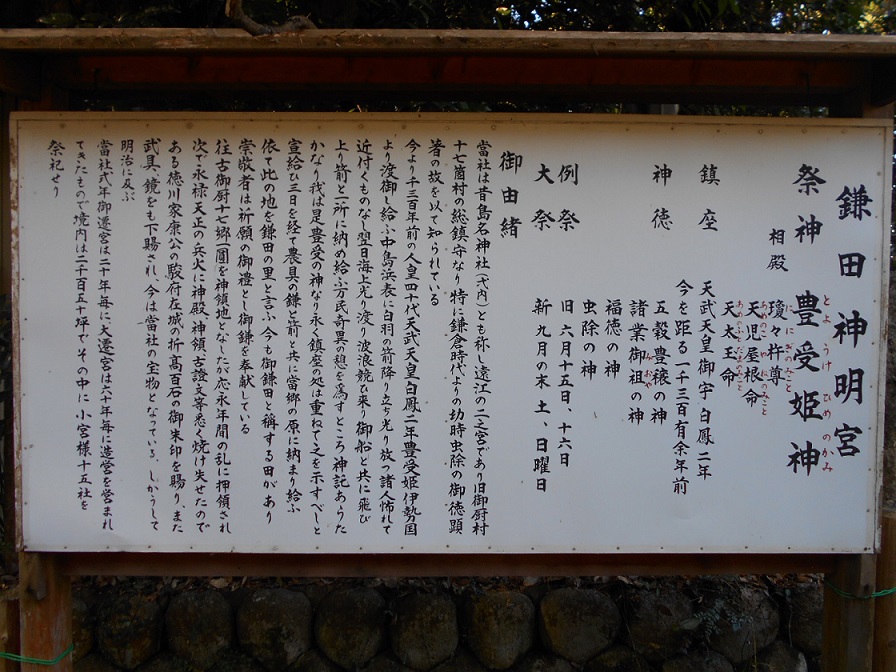 鎌田神明宮
祭神 豊受姫神
とようけひめのかみ
相殿 瓊々杵尊
ににぎのみこと
天児屋根命
あめのこやねのみこと
天太玉命
あめふとだまのみこと
鎮座 天武天皇御宇白鳳二年
今を距る一千三百有余年前
神徳 五穀豊穣の神
諸業御祖の神
みおや
福徳の神
虫除の神
例祭 旧六月十五日、十六日
大祭 新九月の末 土、日曜日
御由緒
當社は昔島名神社(弌内)とも称し遠江の二之宮であり旧御厨村
十七箇村の総鎮守なり特に鎌倉時代よりの幼時虫除の御徳顕
著の故を以て知られている
今より千三百年前の人皇四十代天武天皇白鳳二年豊受姫伊勢国
より渡御し給ふ中島浜表に白羽の箭降り立ち光り放つ諸人怖れて
近付くものなし翌日海上光り渡り波浪競ひ来り御船と共に飛び
上り箭と一所に納め給ふ万民奇異の憩を為すところ神託あらた
かなり我は是豊受の神なり永く鎮座の処は重ねて之を示すべしと
宣給ひ三日を経て農具の鎌と箭と共に當郷の原に納まり給ふ
依て此の地を鎌田の里と言ふ今も御鎌田と稱する田があり
崇敬者は祈願の御禮とし御鎌を奉献している
往古御厨十七郷一圓を神領地となしたが応永年間の乱に押領され
次で永禄天正の兵火に神殿、神領、古證文等悉く焼け失せたので
ある徳川家康公の駿府在城の折高百石の御朱印を賜り、また
武具、鏡をも下賜され、今は當社の宝物となっている、しかうして
明治に及ぶ
當社式年御遷宮は二十年毎に大遷宮は六十年毎に造営を営まれ
てきたもので境内は二千百五十坪でその中に小宮様十五社を
祭祀せり